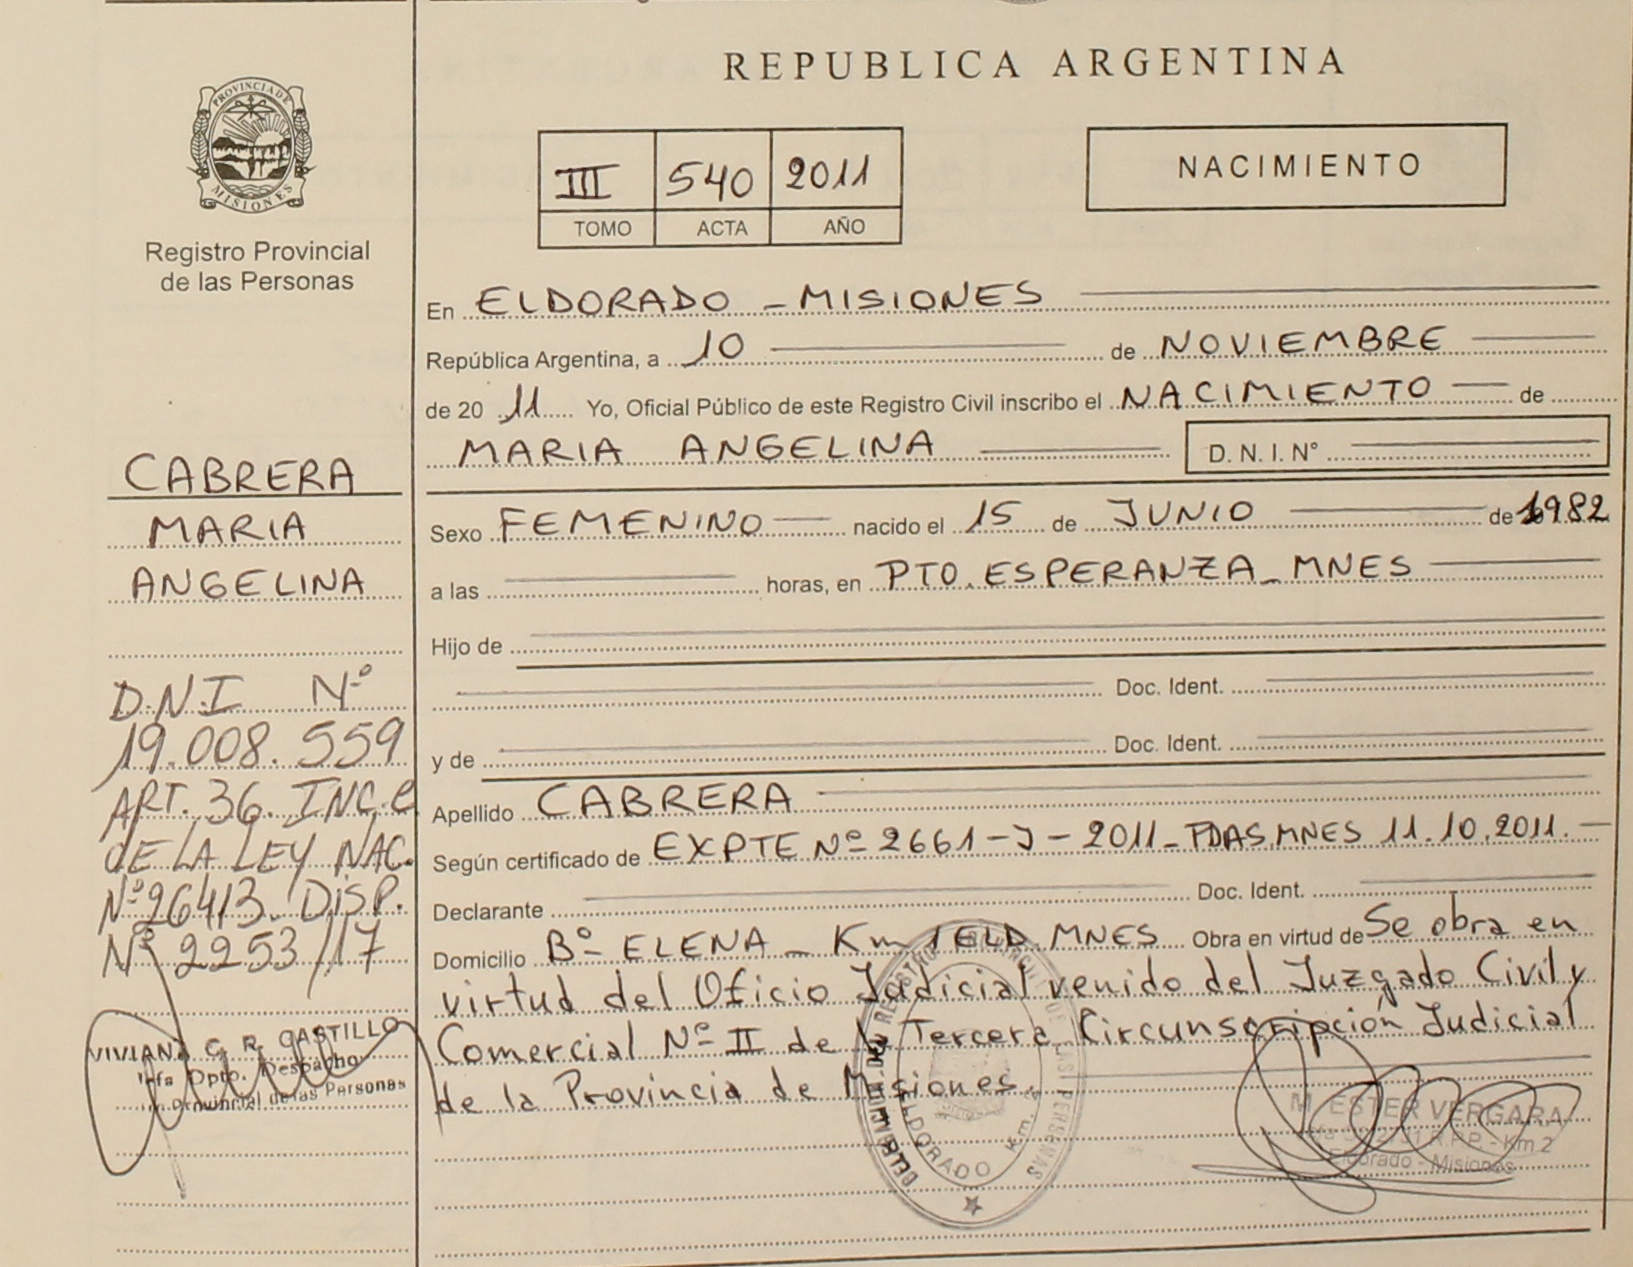 REPUBLICA ARGENTINA
PROVINCIA DE
MISIONES
Registro Provincial
de las Personas
III 540 2011
TOMO ACTA AÑO
NACIMIENTO
En ELDORADO - MISIONES
República Argentina, a 10 de NOVIEMBRE
de 20 11 Yo, Oficial Público de este Registro Civil inscribo el NACIMIENTO de
MARIA ANGELINA D. N. I. N°
Sexo FEMENINO nacido el 15 de JUNIO de 1982
a las horas, en PTO. ESPERANZA - MNES
Hijo de
Doc. Ident.
y de Doc. Ident.
Apellido CABRERA
Según certificado de EXPTE Nº 2661-J-2011- PDAS, MNES 11.10.2011.
Declarante Doc. Ident.
Domicilio Bº ELENA - Km 1 ELD. MNES Obra en virtud de Se obra en
virtud del Oficio Judicial venido del Juzgado Civil y
Comercial Nº II de la Tercera Circunscripción Judicial
de la Provincia de Misiones.
CABRERA
MARIA
ANGELINA
D.N.I Nº
19.008.559
ART. 36. INC. C
DE LA LEY NAC.
Nº 26413. DISP.
Nº 2253/17
VIVIANA C. R. CASTILLO
Jefa Dpto. Despacho
Provincial de las Personas
ELDORADO Km. 2
M. ESTER VERGARA
R.P.P. - Km 2
Eldorado - Misiones